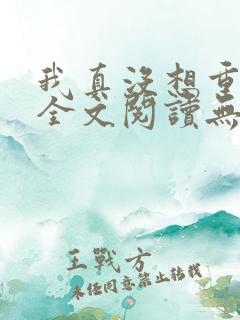 我真没想重
全文閱讀無
王戰方
未经同意禁止转载